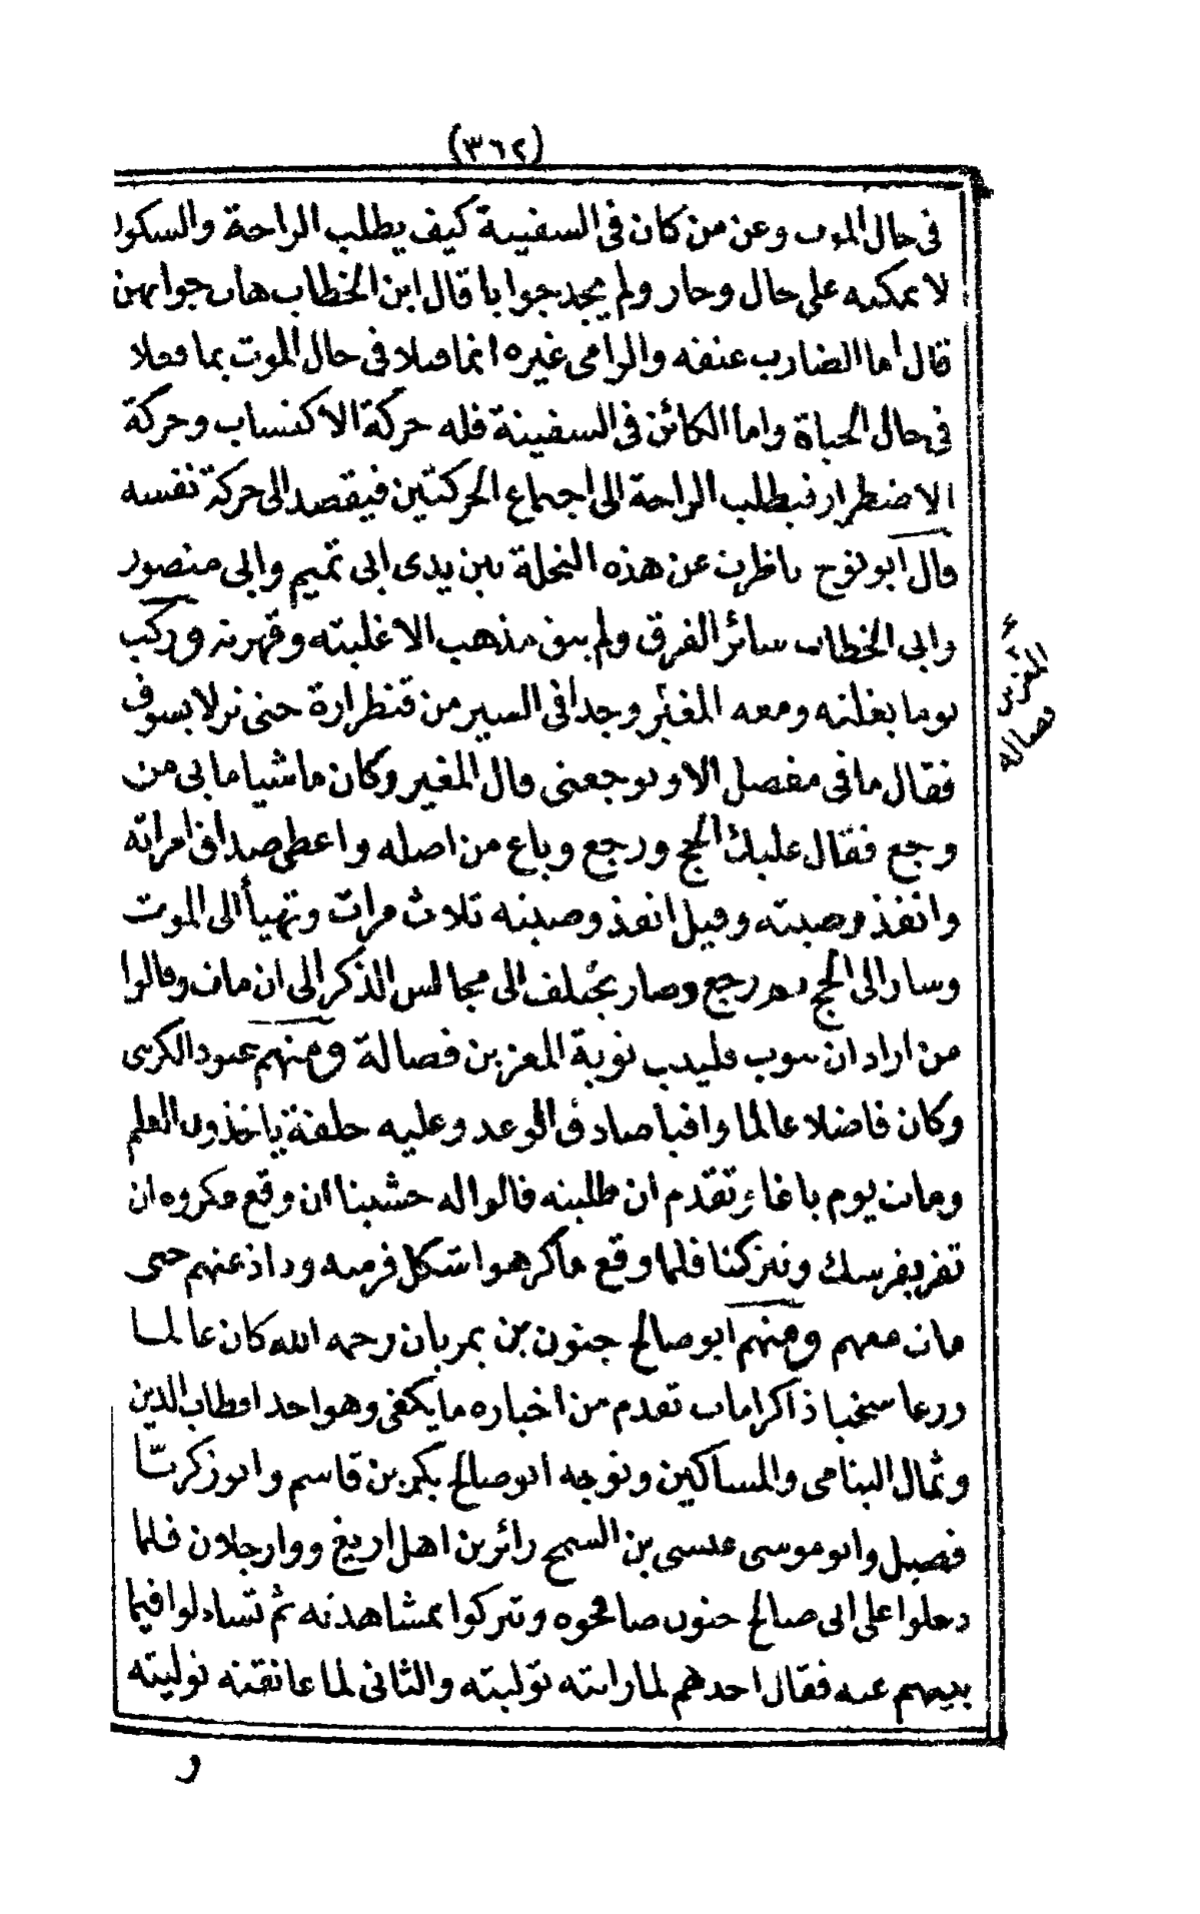 (٣٦٢)
في حال الموت وعن من كان في السفينة كيف يطلب الراحة والسكون
لا يمكنه على حال وحار ولم يجد جوابا قال ابن الخطاب هات جوابهن
قال اما الضارب عنقه والرامى غيره انما قتلا في حال الموت بما فعلا
في حال الحياة واما الكائن في السفينة فله حركة الاكتساب وحركة
الاضطرار فيطلب الراحة الى اجماع الحركتين فيقصد الى حركة نفسه
قال ابو نوح ناظرت عن هذه النحلة بين يدى ابى تميم وابى منصور
وابى الخطاب سائر الفرق ولم يبق مذهب الا غلبته وقهرته وركب
يوما بغلته ومعه المغير وجدا في السير من قنطرارة حتى نزلا بسوف
فقال ما في مفصل الا ويوجعنى قال المغير وكان ماشيا ما بى من
وجع فقال عليك الحج ورجع وباع من اصله واعطى صداق امراته
وانفذ وصيته وقيل انفذ وصيته ثلاث مرات وتهيأ الى الموت
وسار الى الحج ثم رجع وصار يختلف الى مجالس الذكر الى ان مات وقالوا
من اراد ان يتوب فليتب توبة المعز بن فصالة ومنهم عبود الكرسى
وكان فاضلا عالما وافيا صادق الوعد وعليه حلقة ياخذون العلم
ومات يوم باغاء وتقدم ان طلبته قالوا له حشبنا ان وقع مكروه ان
تفر بفرسك وتتركنا فلما وقع ما كرهوا شكل فرسه وداذ عنهم حتى
مات معهم ومنهم ابو صالح جنون بن يمريان رحمه الله كان عالما
ورعا سخيا ذا كرامات تقدم من اخباره ما يكفى وهو احد اقطاب الدين
وثمال اليتامى والمساكين وتوجه ابو صالح بكر بن قاسم وابو زكريا
فصيل وابو موسى عيسى بن السمح زائرين اهل اريغ ووارجلان فلما
دخلوا على ابى صالح جنون صافحوه وتبركوا بمشاهدته ثم تساءلوا فيما
بينهم عنه فقال احدهم لما رايته توليته والثانى لما عانقته توليته
و
المعز بن
فصالة